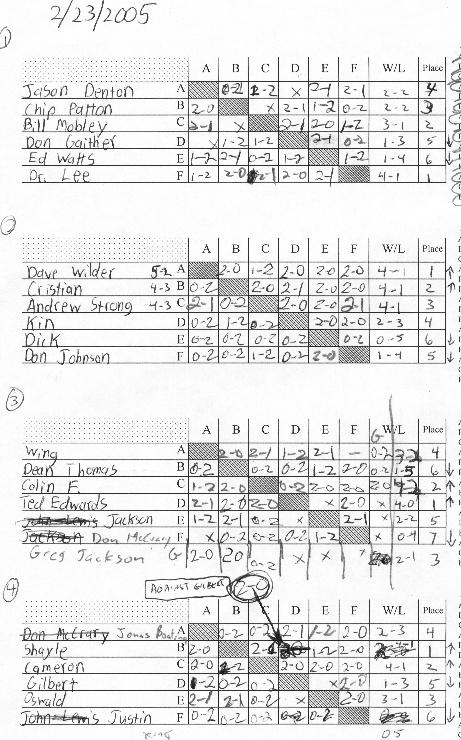 2/23/2005
1
A B C D E F W/L Place
Jason Denton A 0-2 2-2 x 2-1 2-1 2-2 4
Chip Patton B 2-0 x 2-1 1-2 0-2 2-2 3
Bill Mobley C 2-1 x 2-1 2-0 1-2 3-1 2
Don Gaither D x 1-2 1-2 2-1 0-2 1-3 5
Ed Watts E 1-2 2-1 0-2 1-2 1-2 1-4 6
Dr. Lee F 1-2 2-0 2-1 2-0 2-1 4-1 1
2
A B C D E F W/L Place
Dave Wilder 5-2 A 2-0 1-2 2-0 2-0 2-0 4-1 1
Cristian 4-3 B 0-2 2-0 2-1 2-0 2-0 4-1 2
Andrew Strong 4-3 C 2-1 0-2 2-0 2-0 2-1 4-1 3
Kin D 0-2 1-2 0-2 2-0 2-0 2-3 4
Dick E 0-2 0-2 0-2 0-2 0-2 0-5 6
Don Johnson F 0-2 0-2 1-2 0-2 2-0 1-4 5
3
A B C D E F W/L Place
G
Wing A 2-0 2-1 1-2 2-1 - 0-2 3-2 4
Dean Thomas B 0-2 0-2 0-2 1-2 2-0 0-2 1-5 6
Colin F. C 1-2 2-0 0-2 2-0 2-0 2-0 4-2 2
Ted Edwards D 2-1 2-0 2-0 x 2-0 x 4-0 1
John Lewis Jackson E 1-2 2-1 0-2 x 2-1 x 2-2 5
Jackson Don McCrary F x 0-2 0-2 0-2 1-2 x 0-4 7
Greg Jackson G 2-0 20 0-2 x x x 2-1 3
AGAINST GILBERT 2-0
4
A B C D E F W/L Place
Don McCrary Jonas A 0-2 0-2 2-1 1-2 2-0 2-3 4
Shayle B 2-0 2-1 1-2 2-0 1
Cameron C 2-0 1-2 2-0 2-0 2-0 4-1 2
Gilbert D 1-2 0-2 0-2 x 2-0 1-3 5
Oswald E 2-1 2-1 0-2 x 2-0 3-1 3
John Lewis Justin F 0-2 0-2 0-2 0-2 0-2 6
05